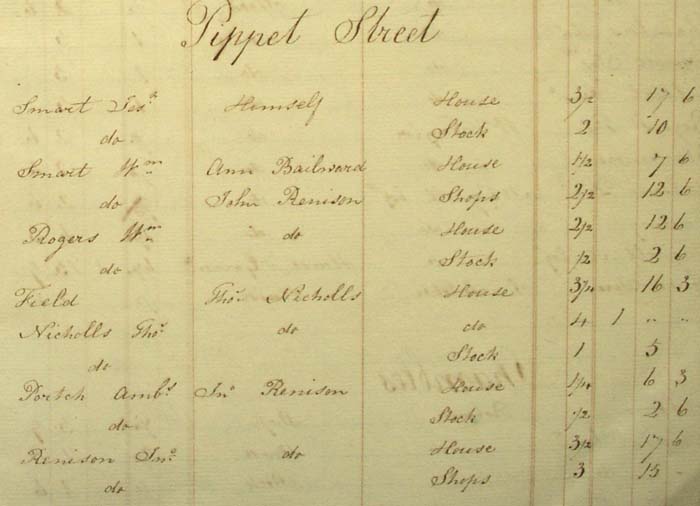 Pippet Street
Smart Jos.ʰ Himself House 3½ 17 6
do Stock 2 10
Smart Wm Ann Bailward House 1½ 7 6
do John Renison Shops 2½ 12 6
Rogers Wm do House 2½ 12 6
do Stock ½ 2 6
Field Tho.s Nicholls House 3¼ 16 3
Nicholls Tho.s do do 4 1 .. ..
do Stock 1 5
Portch Ambs Jno Renison House 1¼ 6 3
do Stock ½ 2 6
Renison Jno. do House 3½ 17 6
do Shops 3 15